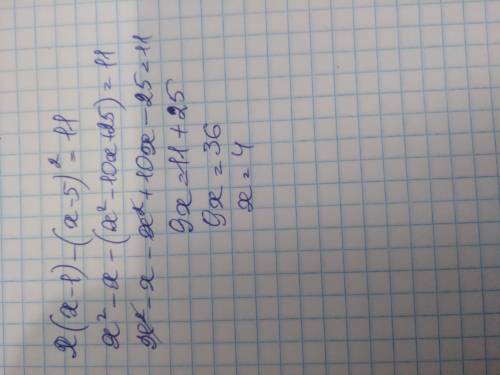 x(x-1)-(x-5)²=11
x²-x-(x²-10x+25)=11
x²-x-x²+10x-25=11
9x=11+25
9x=36
x=4